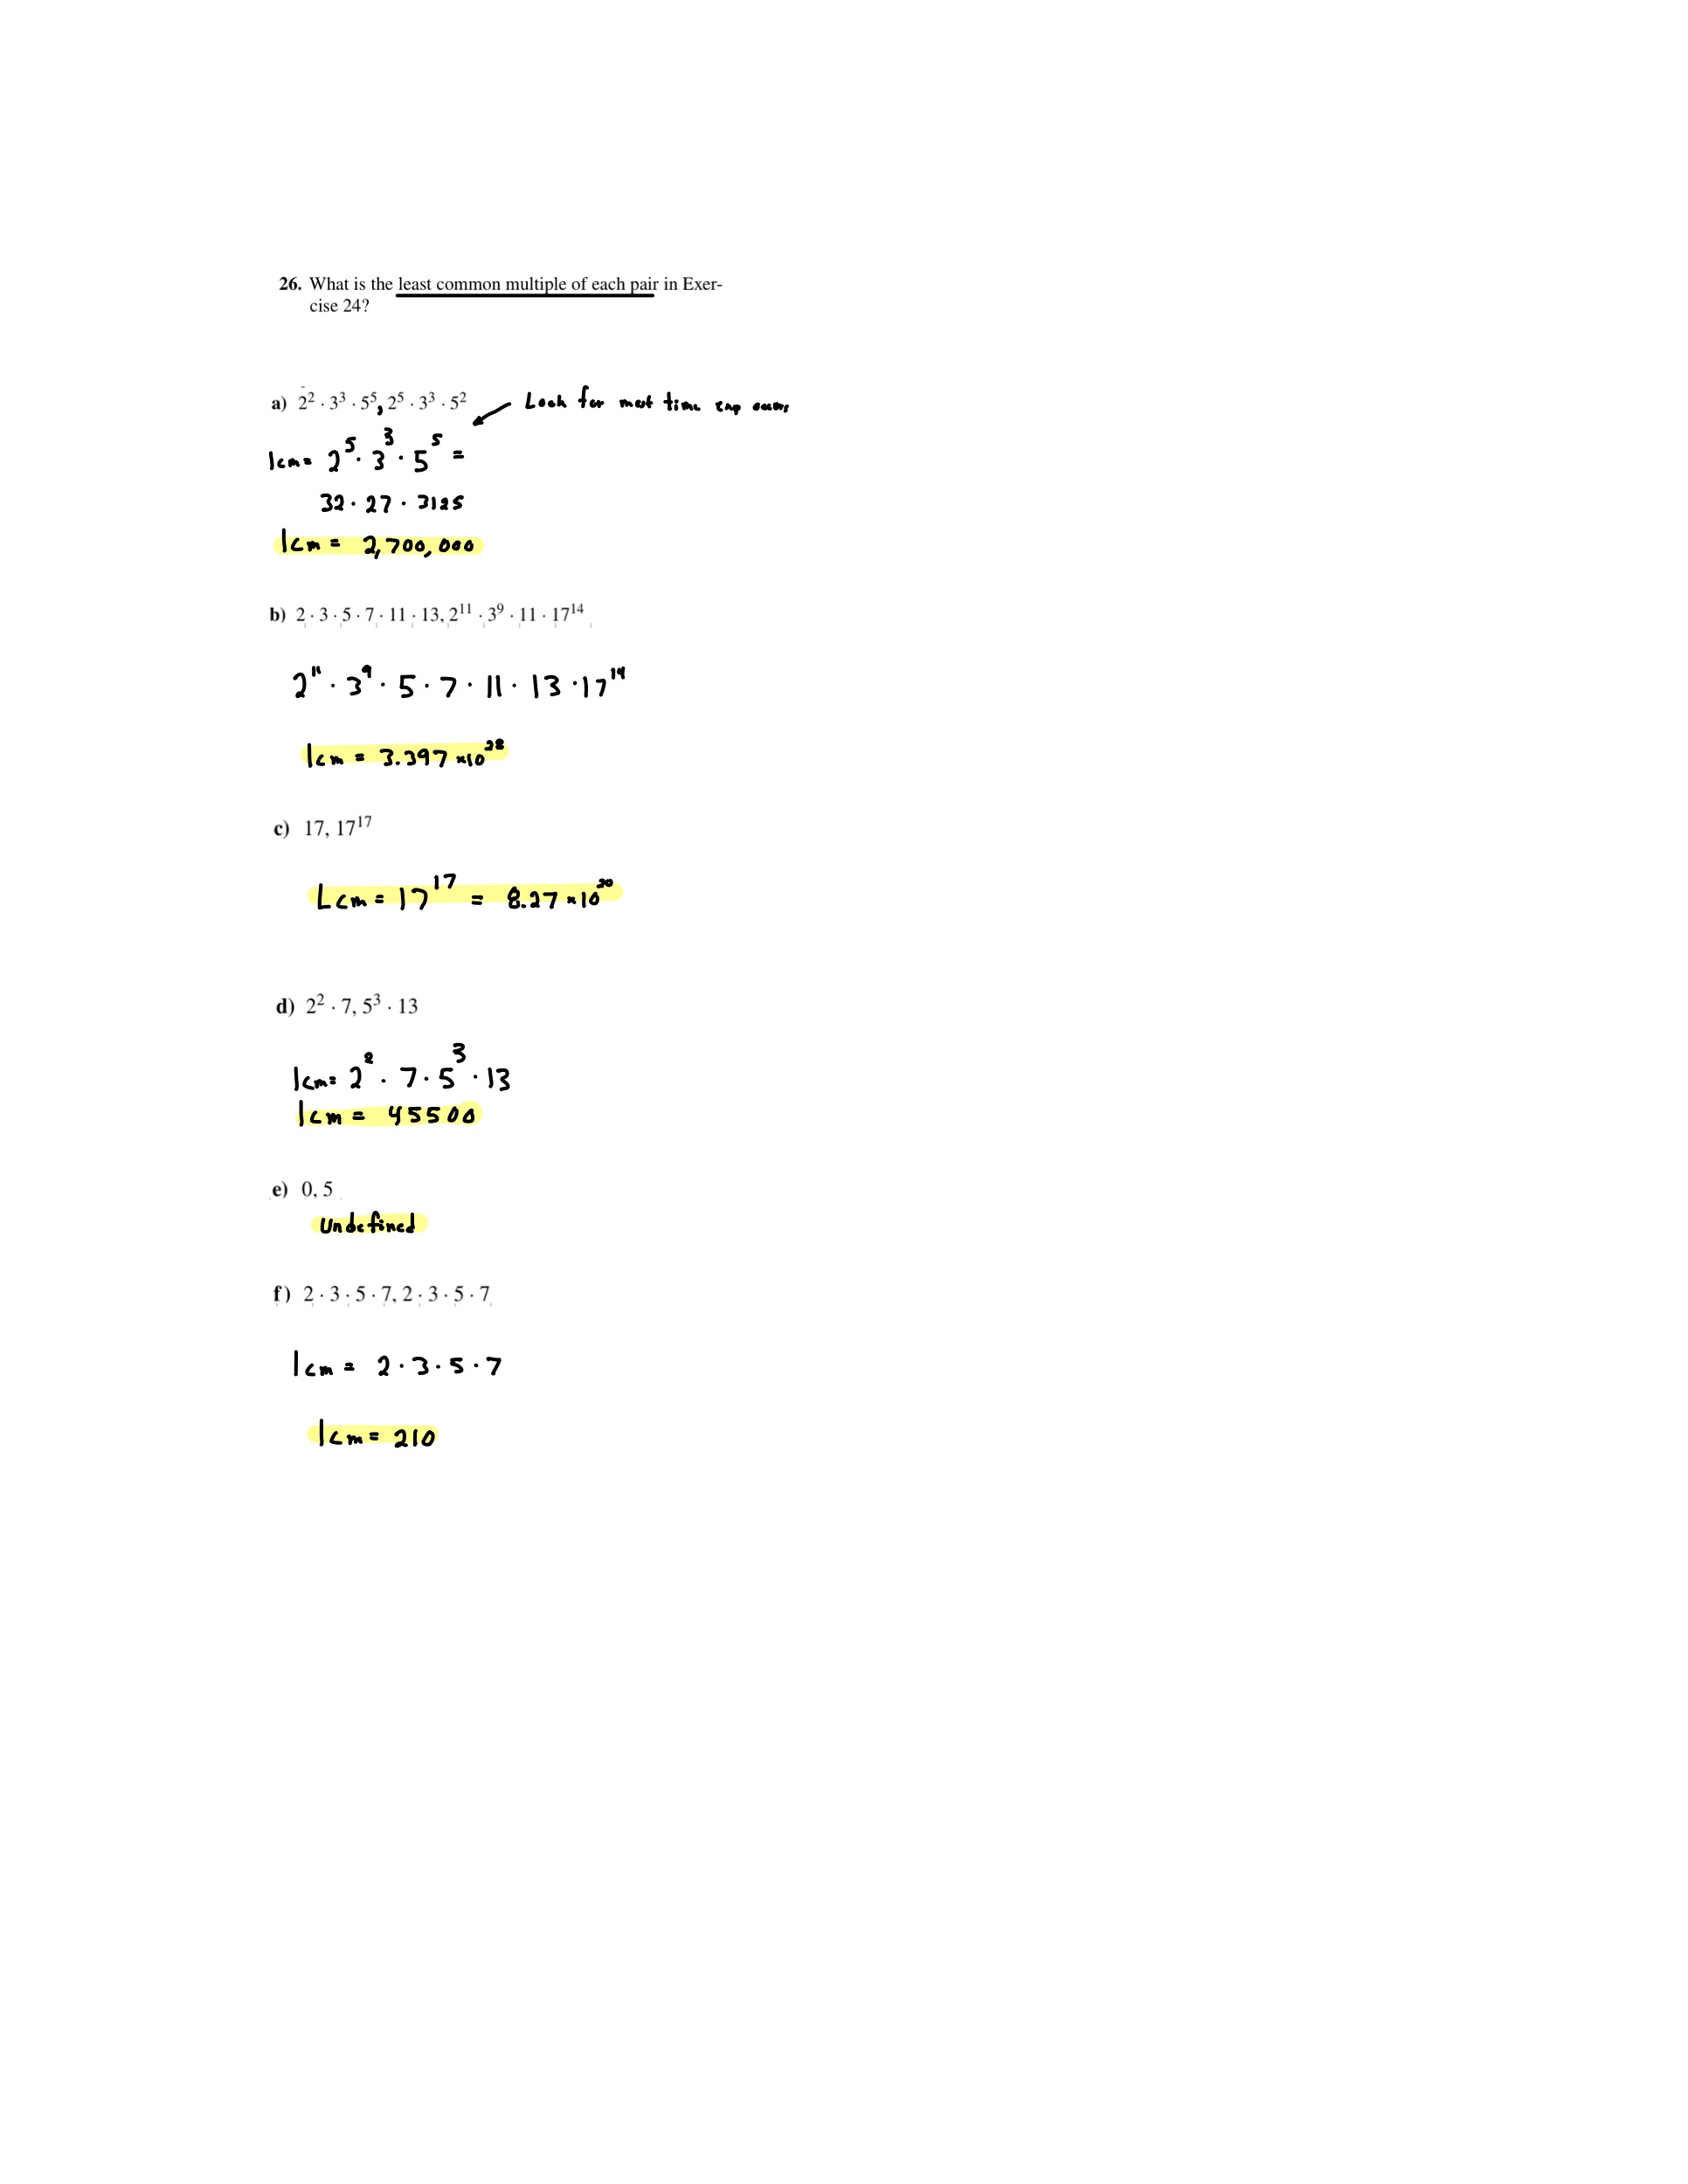 26. What is the least common multiple of each pair in Exer-
cise 24?
a) 2² · 3³ · 5⁵, 2⁵ · 3³ · 5²
Look for most time exp occurs
lcm = 2⁵ · 3³ · 5⁵ =
32 · 27 · 3125
lcm = 2,700,000
b) 2 · 3 · 5 · 7 · 11 · 13, 2¹¹ · 3⁹ · 11 · 17¹⁴
2¹¹ · 3⁹ · 5 · 7 · 11 · 13 · 17¹⁴
lcm = 3.397 × 10²⁸
c) 17, 17¹⁷
Lcm = 17¹⁷ = 8.27 × 10²⁰
d) 2² · 7, 5³ · 13
lcm = 2² · 7 · 5³ · 13
lcm = 45500
e) 0, 5
Undefined
f) 2 · 3 · 5 · 7, 2 · 3 · 5 · 7
lcm = 2 · 3 · 5 · 7
lcm = 210